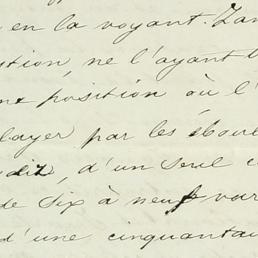 en la voyant. Lan
stion, ne l'ayant t
nt position où l'
layer par les éboul
dix, d'un seul c
de six à neuf var
d'une cinquantai